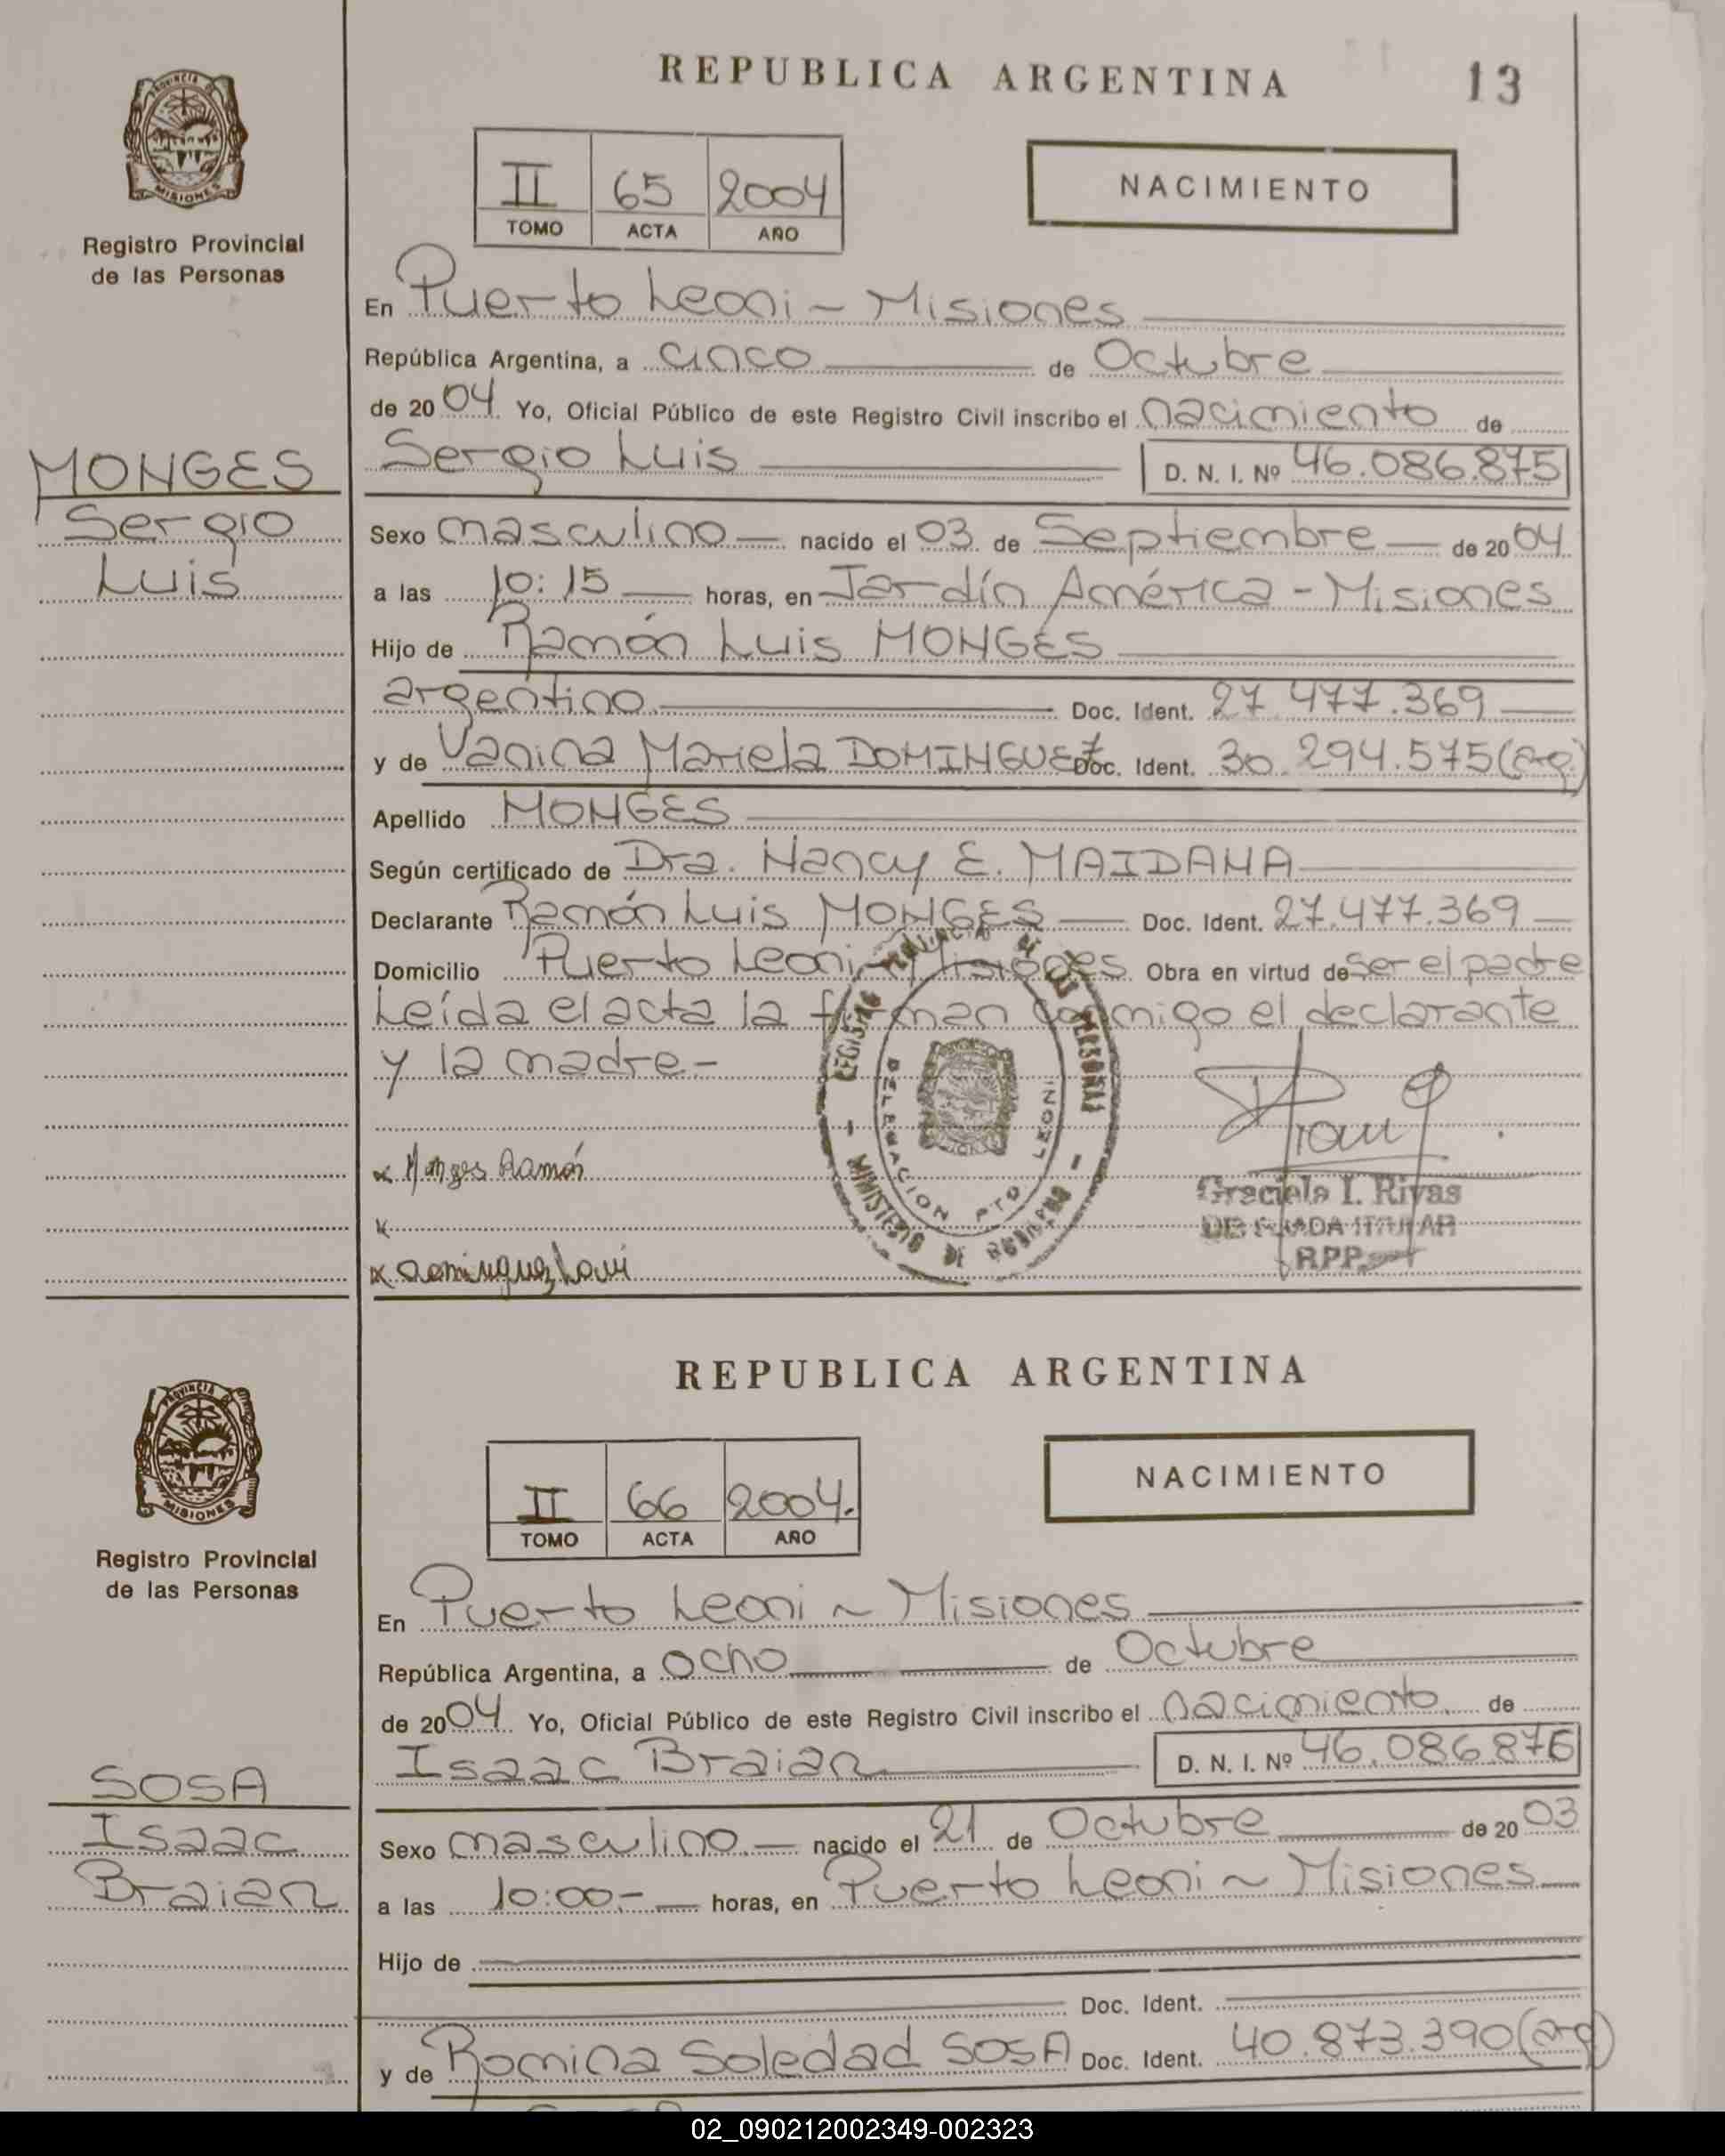 REPUBLICA ARGENTINA
13
PROVINCIA DE
MISIONES
Registro Provincial
de las Personas
II 65 2004
TOMO ACTA AÑO
NACIMIENTO
En Puerto Leoni - Misiones
República Argentina, a cinco de Octubre
de 2004 Yo, Oficial Público de este Registro Civil inscribo el nacimiento de
MONGES
Sergio
Luis
Sergio Luis D. N. I. Nº 46.086.875
Sexo masculino nacido el 03 de Septiembre de 2004
a las 10:15 horas, en Jardín América - Misiones
Hijo de Ramón Luis MONGES
argentino Doc. Ident. 27.477.369
y de Vanina Mariela DOMINGUEZ Doc. Ident. 30.294.575 (arg)
Apellido MONGES
Según certificado de Dra. Nancy E. MAIDANA
Declarante Ramón Luis MONGES Doc. Ident. 27.477.369
Domicilio Puerto Leoni - Misiones Obra en virtud de ser el padre
Leída el acta la firman conmigo el declarante
y la madre.-
x Monges Ramón
x
x Dominguez
DELEGACION PTO LEONI
Graciela I. Rivas
TITULAR
RPP
REPUBLICA ARGENTINA
PROVINCIA DE
MISIONES
Registro Provincial
de las Personas
II 66 2004.
TOMO ACTA AÑO
NACIMIENTO
En Puerto Leoni ~ Misiones
República Argentina, a ocho de Octubre
de 2004 Yo, Oficial Público de este Registro Civil inscribo el nacimiento de
SOSA
Isaac
Braian
Isaac Braian D. N. I. Nº 46.086.876
Sexo masculino nacido el 21 de Octubre de 2003
a las 10:00.- horas, en Puerto Leoni ~ Misiones
Hijo de
Doc. Ident.
y de Romina Soledad SOSA Doc. Ident. 40.873.390 (arg)
02_090212002349-002323